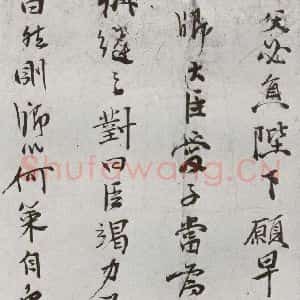 父必負陛下願早
卿大臣愛子當為
彌縫之對曰臣竭力
曰然則卿以何策自免
Shufawang.CN